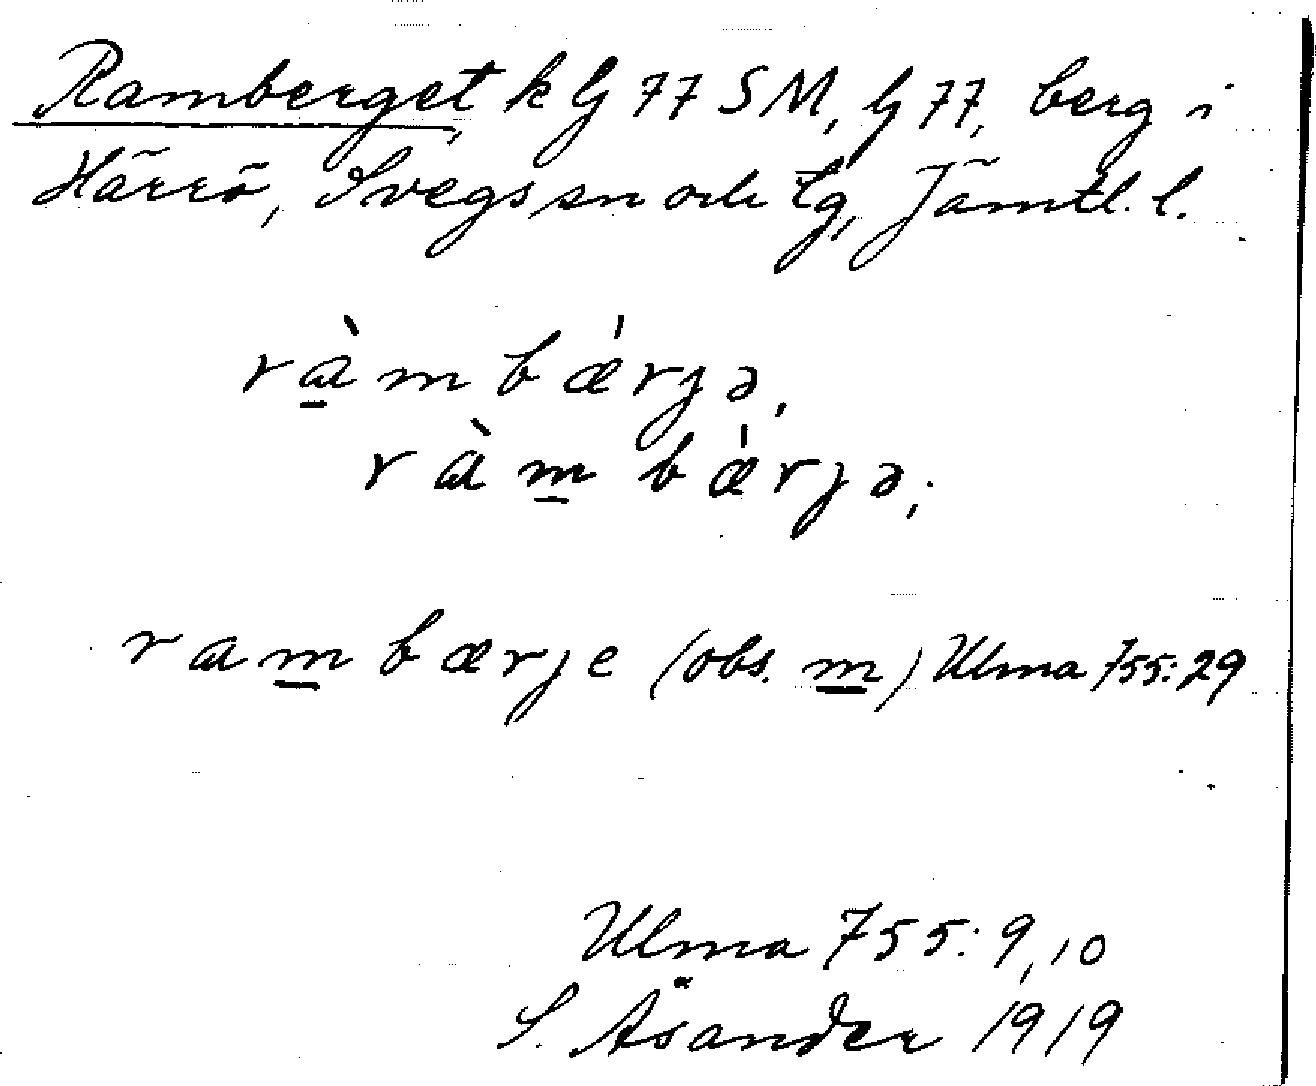 Ramberget, k G 77 SM, G 77, berg i
Härrö, Svegs sn och tg, Jämtl. l.
rà̱mbǽrjə,
ràm̱bǽrjə;
ram̱bærje (obs. m̱) Ulma 755:29
Ulma 755: 9, 10
S. Åsander 1919